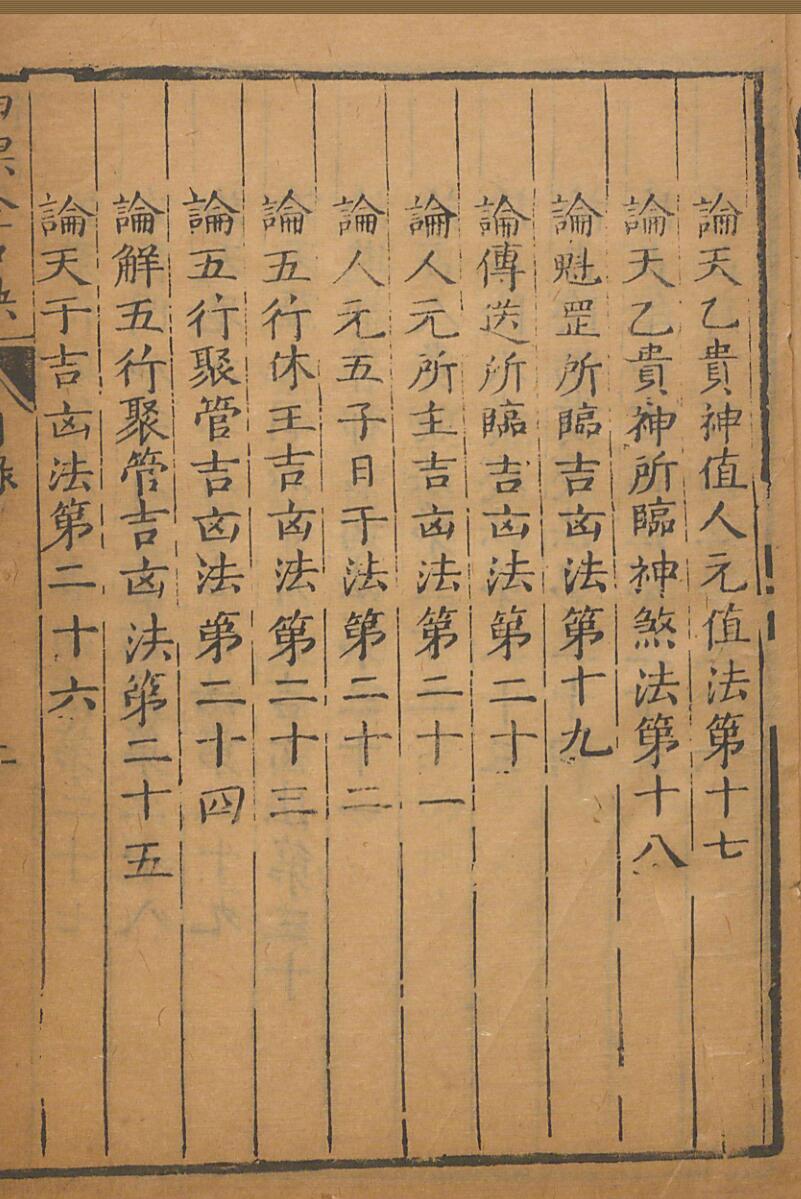 論天乙貴神值人元值法第十七
論天乙貴神所臨神煞法第十八
論魁罡所臨吉㐫法第十九
論傳送所臨吉㐫法第二十
論人元所主吉㐫法第二十一
論人元五子日干法第二十二
論五行休王吉㐫法第二十三
論五行聚管吉㐫法第二十四
論解五行聚管吉㐫法第二十五
論天干吉㐫法第二十六